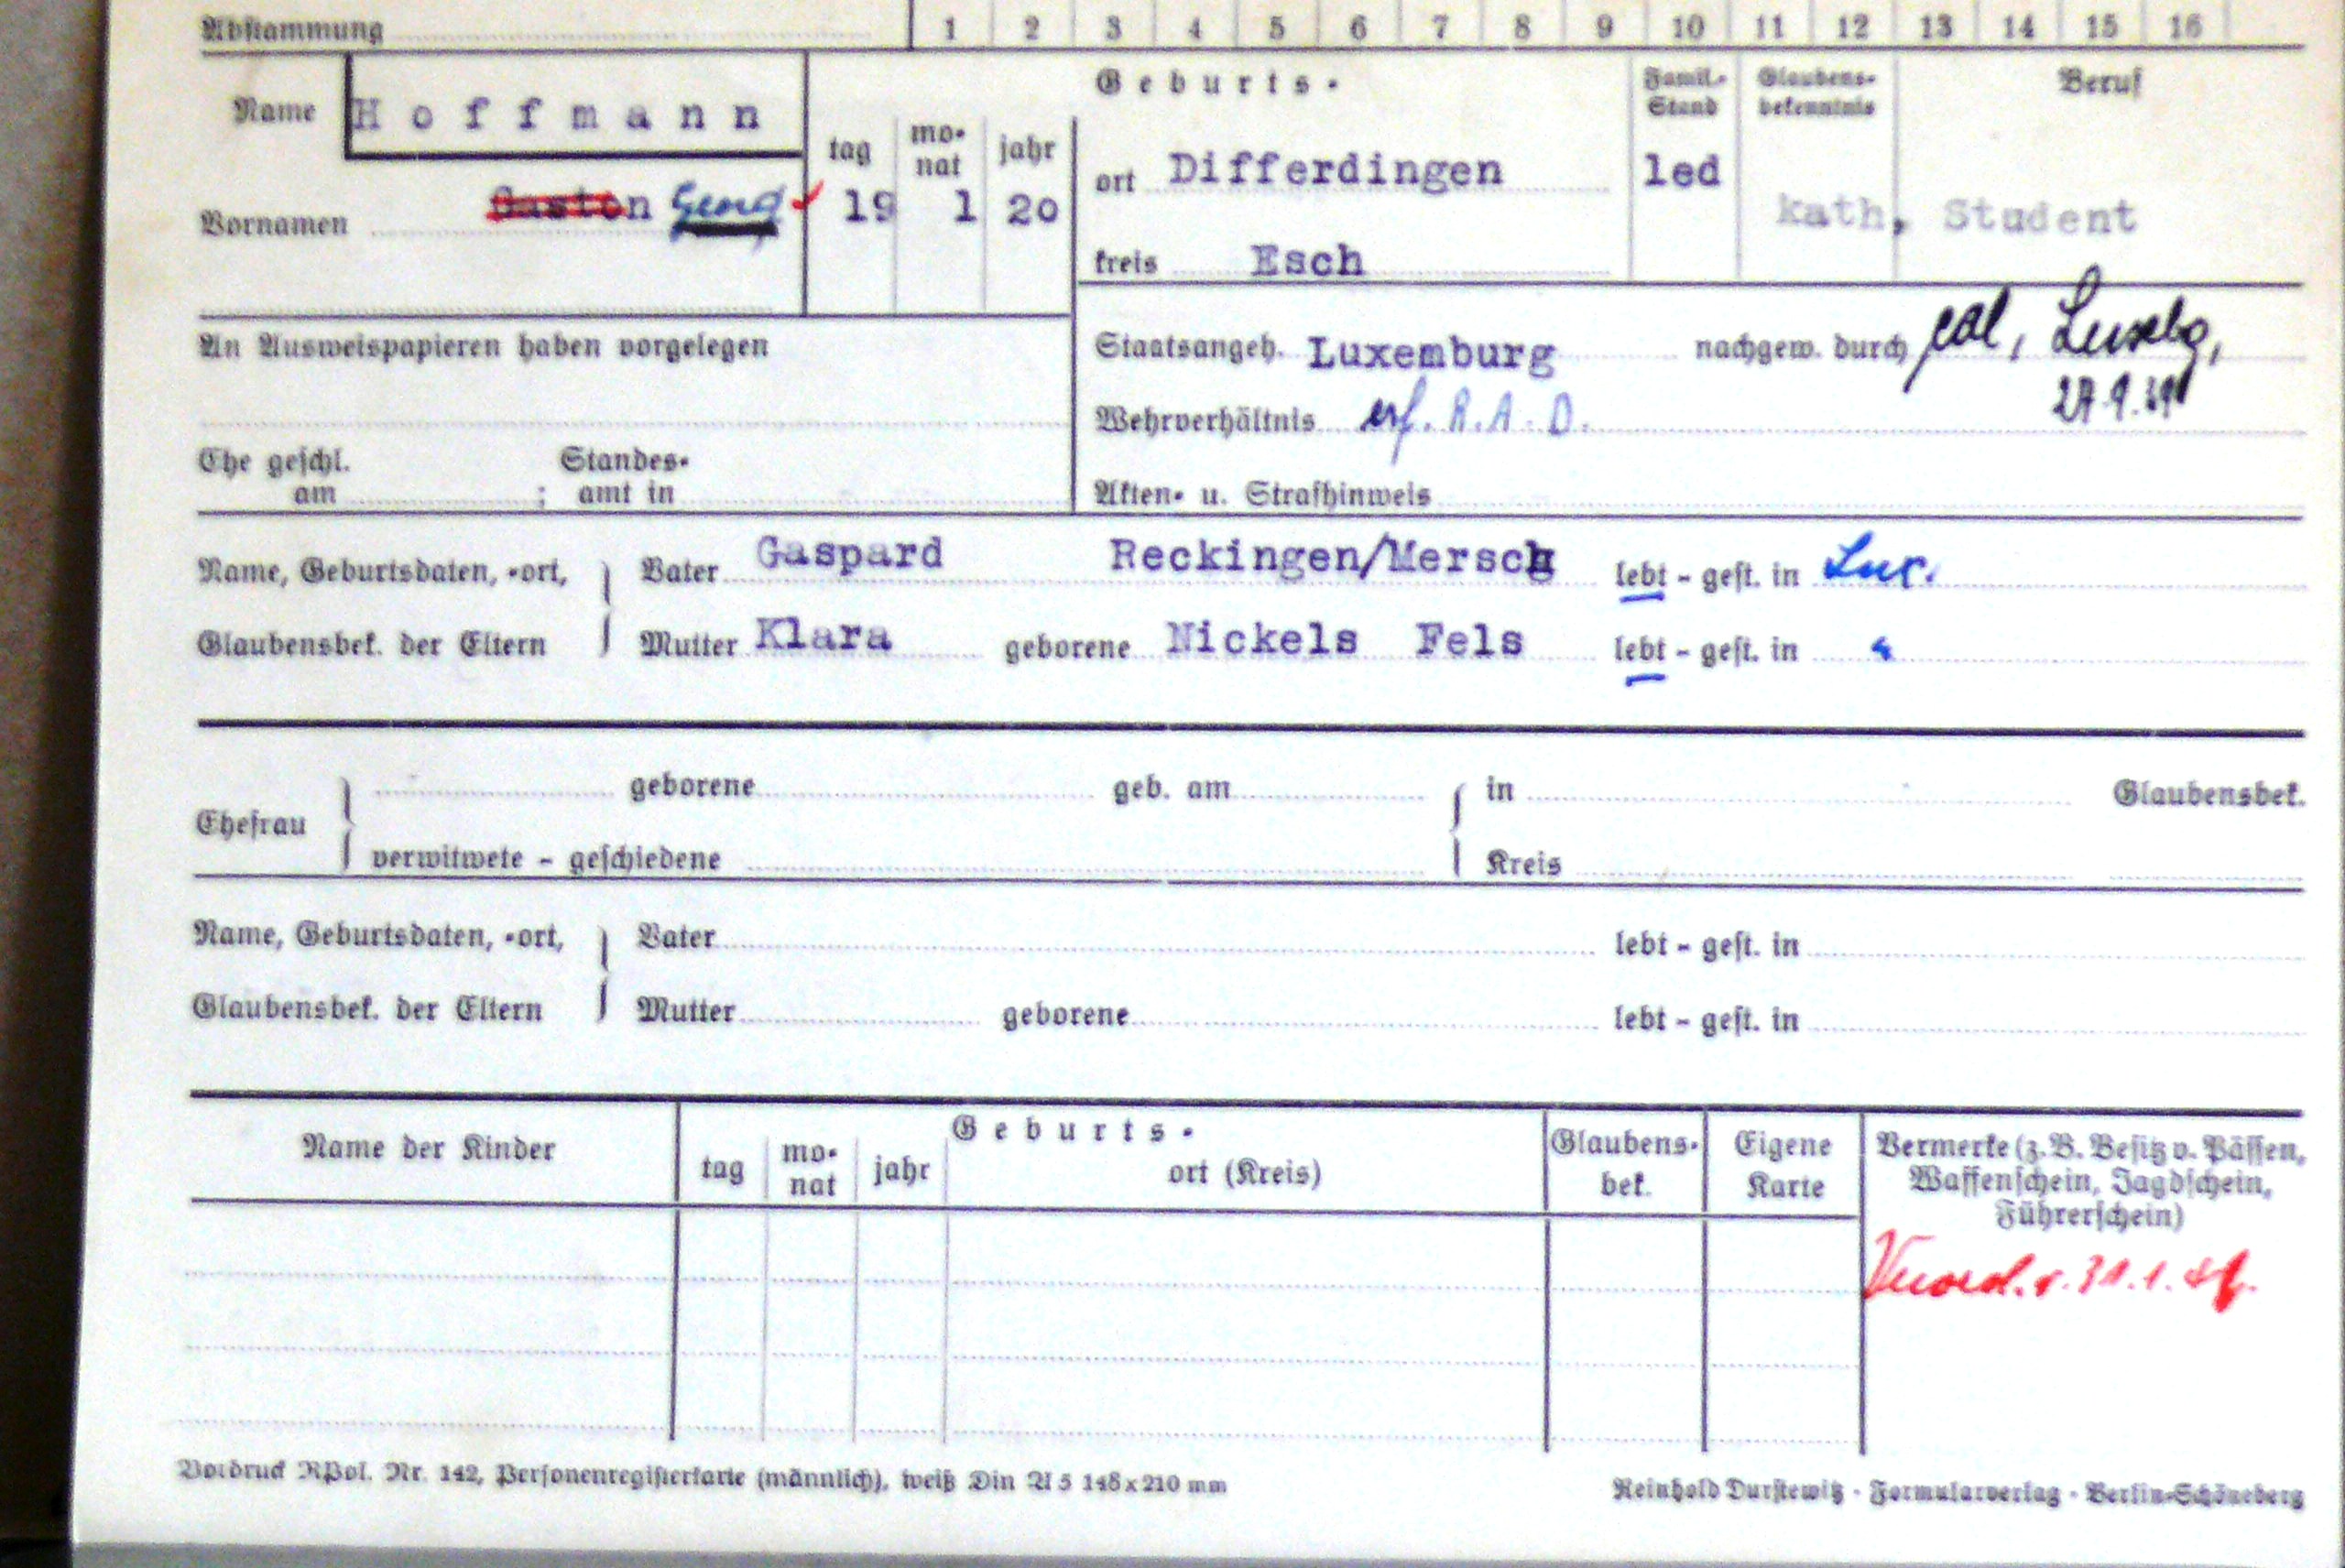 Abstammung 1 2 3 4 5 6 7 8 9 10 11 12 13 14 15 16
Name Hoffmann
Vornamen Gaston Georg
Geburts-
tag monat jahr
19 1 20
ort Differdingen
kreis Esch
Famil.-Stand
led
Glaubensbekenntnis
kath.
Beruf
Student
An Ausweispapieren haben vorgelegen
Staatsangeh. Luxemburg nachgew. durch Luxbg,
Wehrverhältnis erf. R.A.D.
Ehe geschl. Standes-
am ; amt in
Akten- u. Strafhinweis
Name, Geburtsdaten, -ort, Vater Gaspard Reckingen/Mersch lebt - gest. in Lux.
Glaubensbek. der Eltern Mutter Klara geborene Nickels Fels lebt - gest. in "
Ehefrau geborene geb. am in Glaubensbek.
verwitwete - geschiedene Kreis
Name, Geburtsdaten, -ort, Vater lebt - gest. in
Glaubensbek. der Eltern Mutter geborene lebt - gest. in
Name der Kinder
Geburts-
tag monat jahr ort (Kreis)
Glaubens-
bek.
Eigene
Karte
Vermerke (z. B. Besitz v. Pässen,
Waffenschein, Jagdschein,
Führerschein)
Vordruck RPol. Nr. 142, Personenregisterkarte (männlich), weiß Din A 5 148x210 mm
Reinhold Durstewitz · Formularverlag · Berlin-Schöneberg